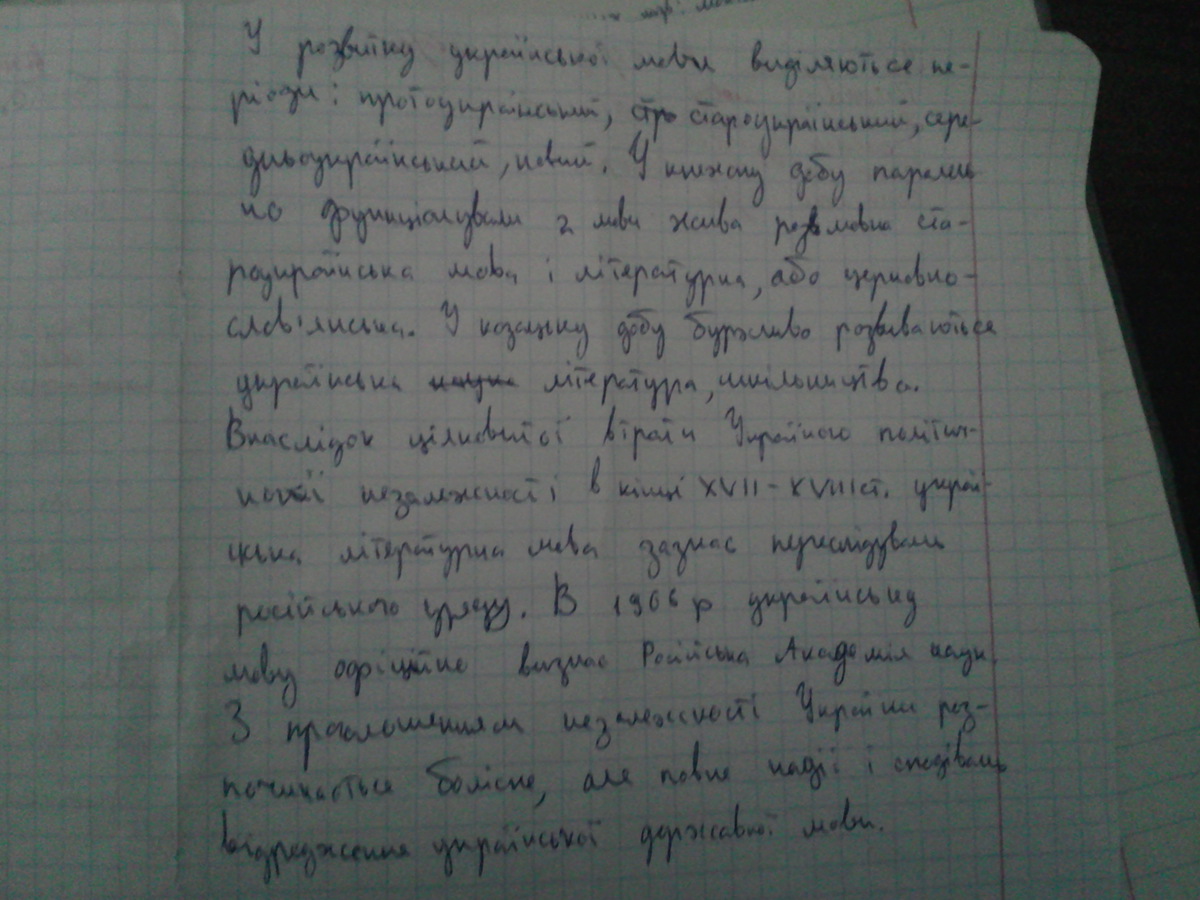 У розвитку української мови виділяються пе-
ріоди: протоукраїнський, стр староукраїнський, сере-
дньоукраїнський, новий. У княжу добу паралель
но функціонували 2 мови жива розмовна ста-
роукраїнська мова і літературна, або церковно-
слов'янська. У козацьку добу бурхливо розвиваються
українська наука література, шкільництво.
Внаслідок цілковитої втрати Україною політич-
ної незалежності в кінці XVII-XVIII ст. україн-
ська літературна мова зазнає переслідувань
російського уряду. В 1906 р українську
мову офіційно визнає Російська Академія наук.
З проголошенням незалежності України роз-
починається болісне, але повне надії і сподівань
відродження української державної мови.